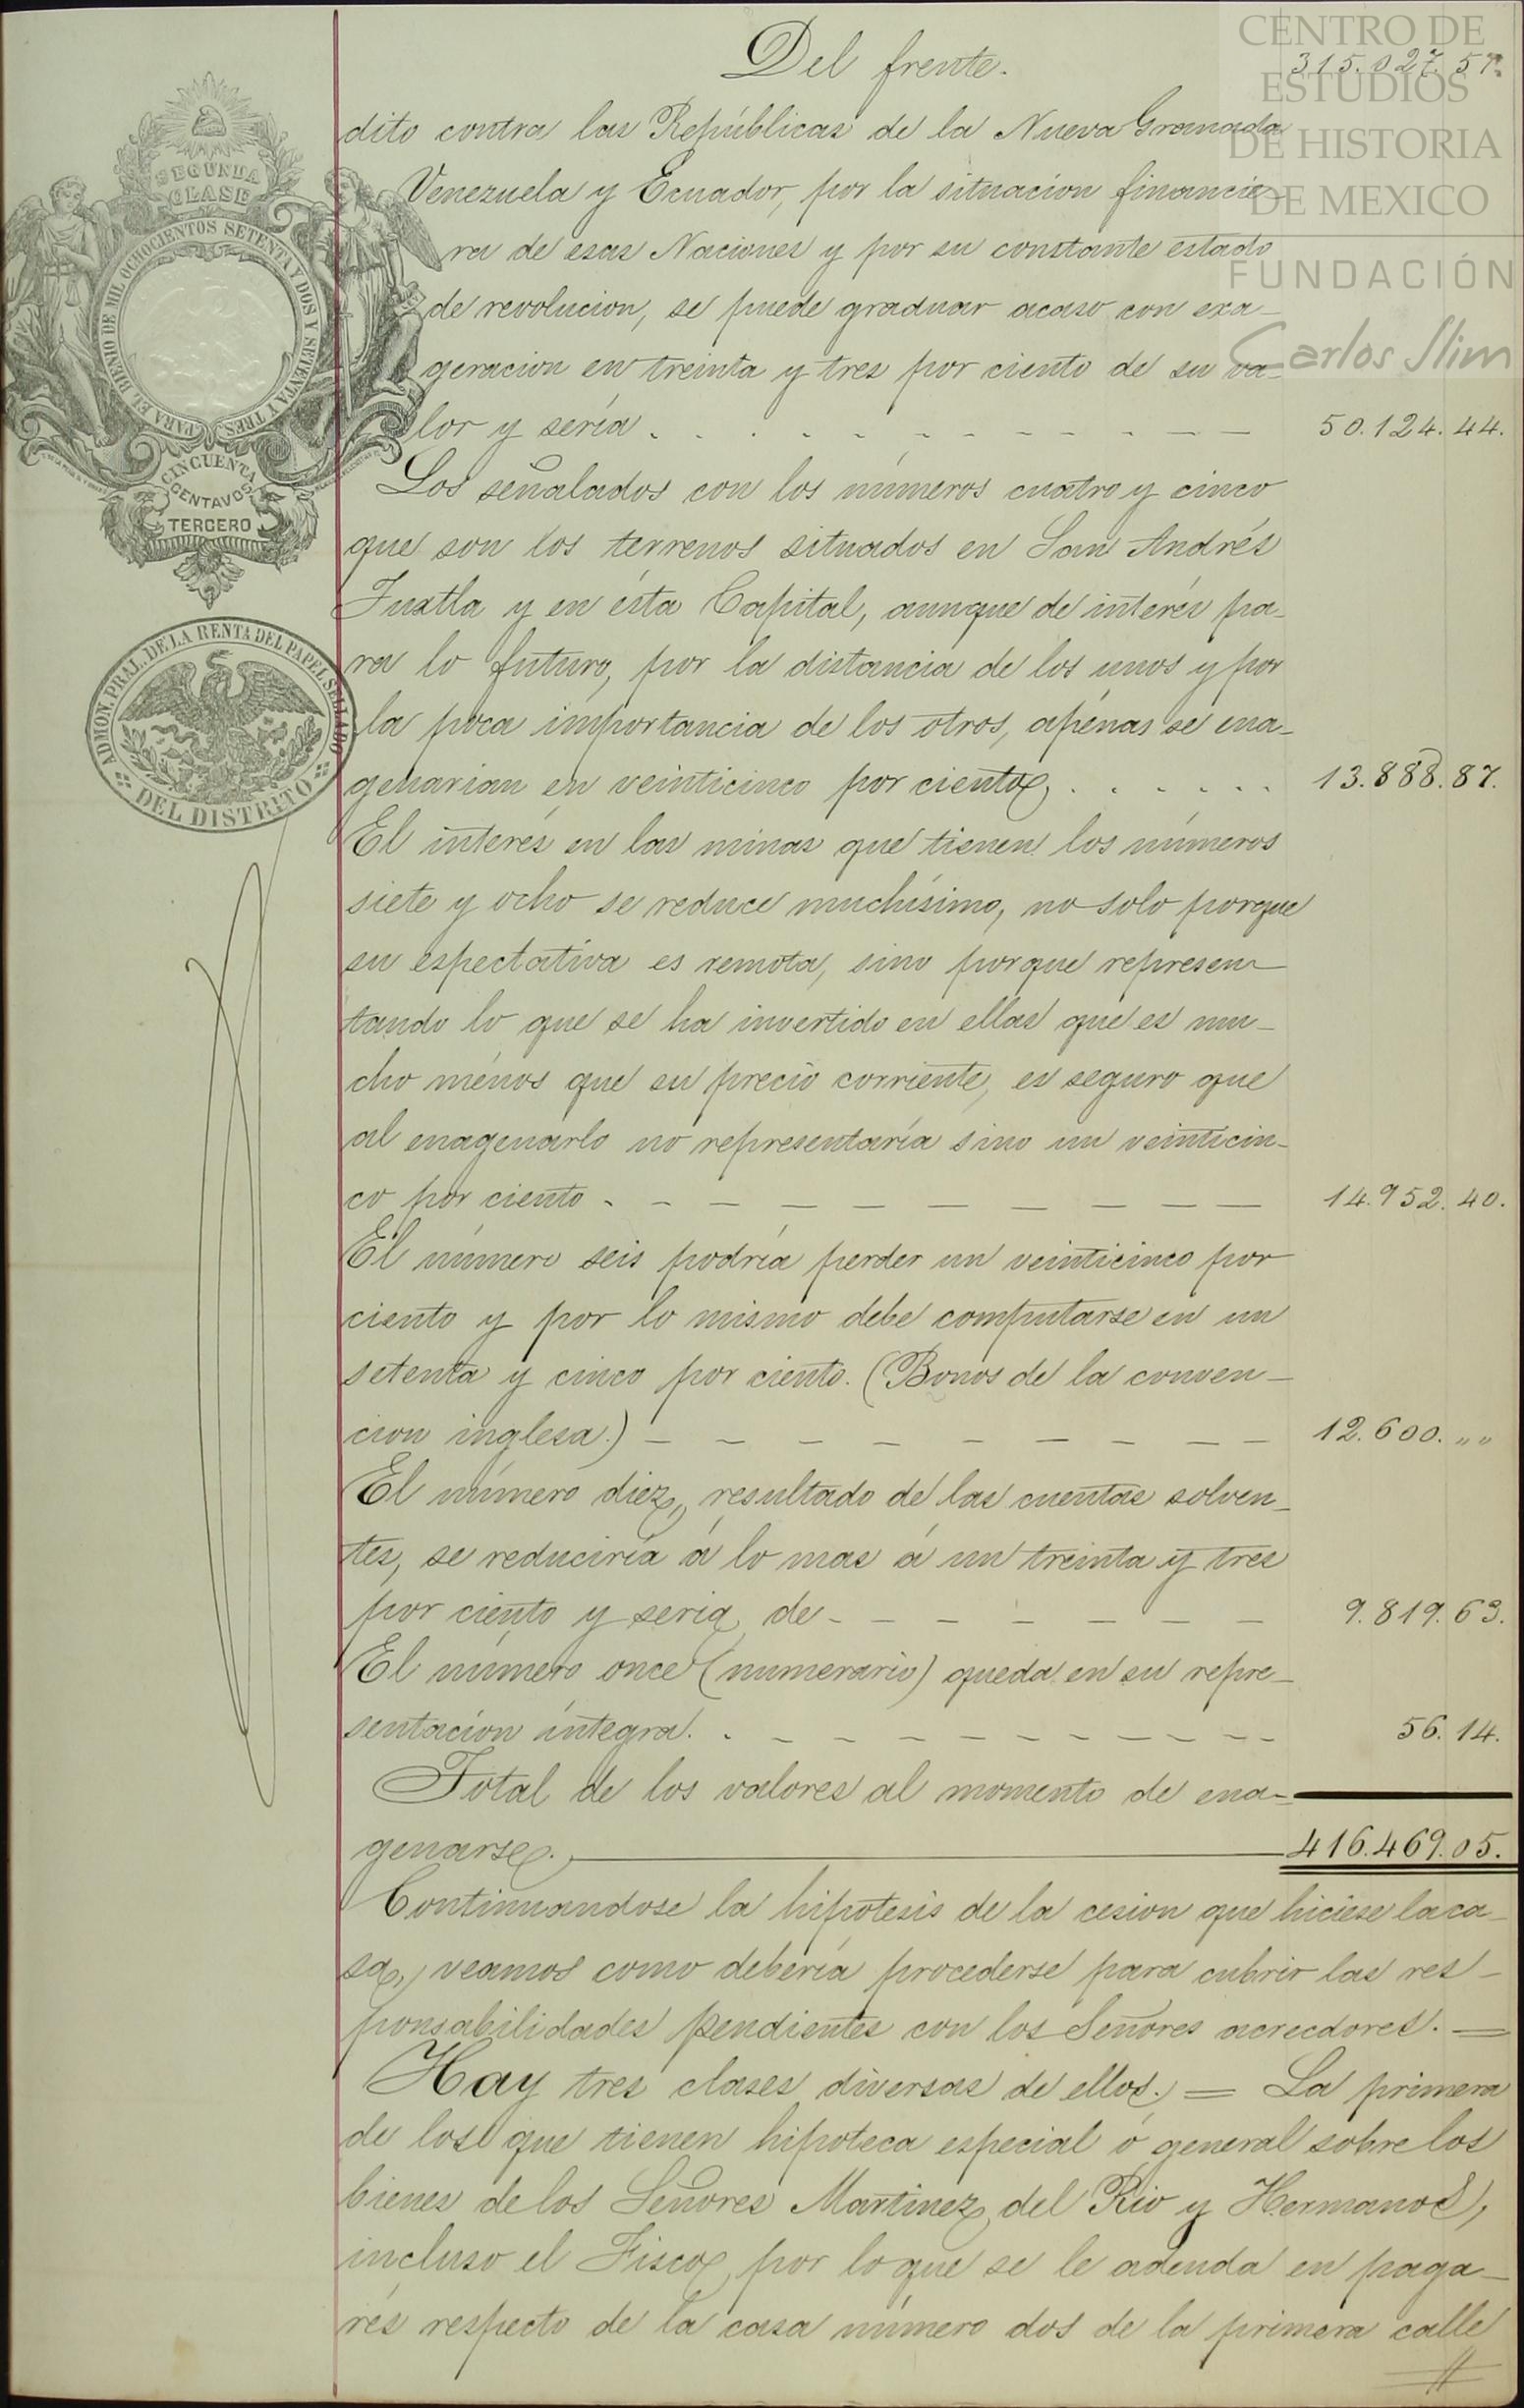 CENTRO DE
ESTUDIOS
DE HISTORIA
DE MEXICO
FUNDACIÓN
Carlos Slim
SEGUNDA
CLASE
PARA EL BIENIO DE MIL OCHOCIENTOS SETENTA Y DOS Y SETENTA Y TRES
CINCUENTA
CENTAVOS
TERCERO
ADMON. PRAL. DE LA RENTA DEL PAPEL SELLADO
DEL DISTRITO
Del frente. 315.027.57.
dito contra las Repúblicas de la Nueva Granada
Venezuela y Ecuador, por la situacion financie-
ra de esas Naciones y por su constante estado
de revolucion, se puede graduar acaso con exa-
geracion en treinta y tres por ciento de su va-
lor y sería . . . . - - - - - - - - 50.124.44.
Los señalados con los números cuatro y cinco
que son los terrenos situados en San Andrés
Tuxtla y en ésta Capital, aunque de interés pa-
ra lo futuro, por la distancia de los unos y por
la poca importancia de los otros, apénas se ena-
genarian en veinticinco por ciento, . . . . . . 13.888.87.
El interés en las minas que tienen los números
siete y ocho se reduce muchísimo, no solo porque
su espectativa es remota, sino porque represen-
tando lo que se ha invertido en ellas que es mu-
cho ménos que su precio corriente, es seguro que
al enagenarlo no representaría sino un veinticin-
co por ciento - - - - - - - - - - 14.952.40.
El número seis podría perder un veinticinco por
ciento y por lo mismo debe computarse en un
setenta y cinco por ciento. (Bonos de la conven-
cion inglesa.) - - - - - - - - - 12.600. „ „
El número diez, resultado de las cuentas solven-
tes, se reduciría á lo mas á un treinta y tres
por ciento y seria de - - - - - - - 9.819.63.
El número once (numerario) queda en su repre-
sentacion íntegra. . - - - - - - - - - - 56.14.
Total de los valores al momento de ena-
genarse. 416.469.05.
Continuandose la hipotesis de la cesion que hiciese la ca-
sa, veamos como debería procederse para cubrir las res-
ponsabilidades pendientes con los Señores acreedores. =
Hay tres clases diversas de ellos. = La primera
de los que tienen hipoteca especial ó general sobre los
bienes de los Señores Martinez del Rio y Hermanos,
incluso el Fisco, por lo que se le adeuda en paga-
rés respecto de la casa número dos de la primera calle